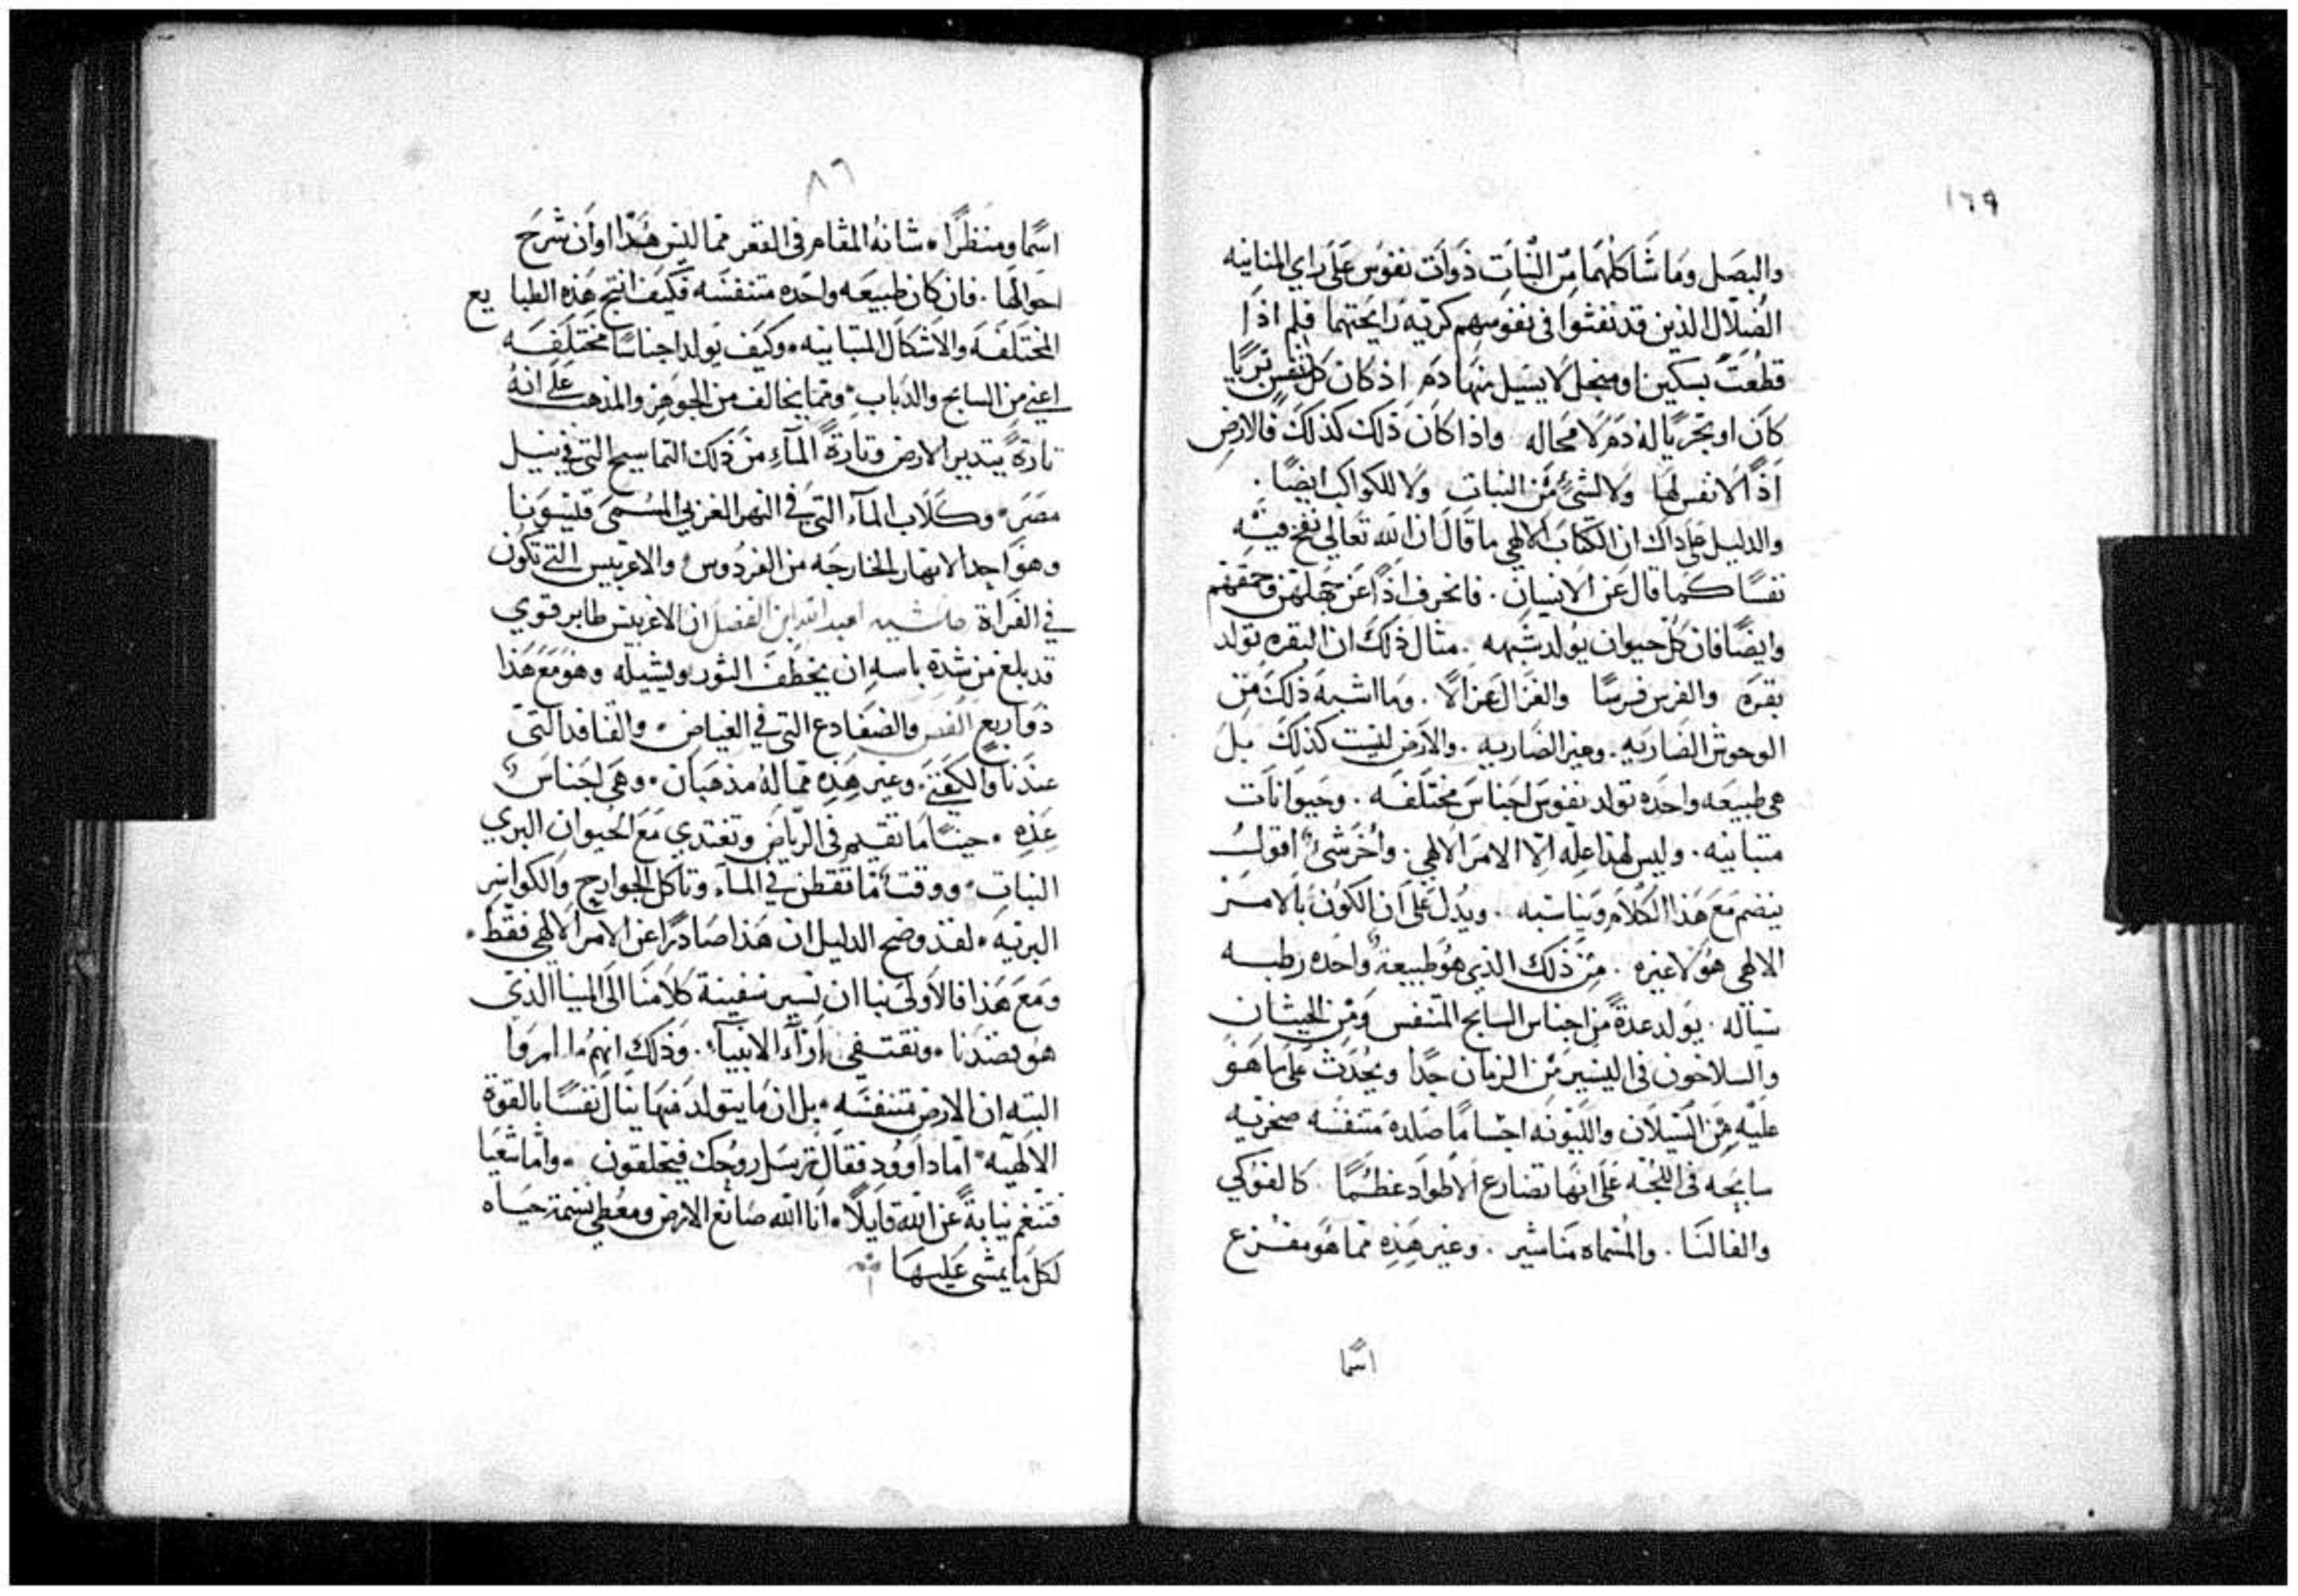 ١٦٩
والبصل وما شاكلهما من النبات ذوات نفوس على راي المنانيه
الضلال الذين قد نفثوا في نفوسهم كريه رايحتهما فلم اذا
قطعت بسكين او منجل لا يسيل منها دم اذ كان كل نفس بريا
كان او بحريا له دم لا محاله واذا كان ذلك كذلك فالارض
اذا لا نفس لها ولا لشئ من النبات ولا للكواكب ايضا .
والدليل على ذاك ان الكتاب الالهي ما قال ان الله تعالى نفخ فيه
نفسا كما قال عن الانسان . فانحرف اذا عن جهلهم وحمقهم
وايضا فان كل حيوان يولد شبهه . مثال ذلك ان البقره تولد
بقره والفرس فرسا والغزال غزالا . وما اشبه ذلك من
الوحوش الضاريه . وغير الضاريه . والارض ليست كذلك بل
هي طبيعه واحده تولد نفوس اجناس مختلفه . وحيوانات
متباينه . وليس لهذا عله الا الامر الالهي . واخر شئ اقول
ينضم مع هذا الكلام ويناسبه . ويدل على ان الكون بالامر
الالهي هو لا غيره . من ذلك الذي هو طبيعة واحده رطبه
سياله . يولد عدة من اجناس السابح المتنفس ومن الحيتان
والسلاحون في اليسير من الزمان جدا ويحدث على ما هو
عليه من السيلان والليونه اجساما صلدة متنفسه صخريه
سابحه في اللجه على انها تضارع الاطواد عظما . كالفوكي
والفالنا . والمسماه مناشير . وغير هذه مما هو مفزع
اسما
٨٦
اسما ومنظرا . شانه المقام في القعر مما ليس هذا اوان شرح
احوالها . فان كان طبيعه واحده متنفسه فكيف انتج هذه الطبايع
المختلفه والاشكال المتباينه . وكيف تولد اجناسا مختلفه
اعني من السابح والدباب . ومما يخالف من الجوهر والمذهب على انه
تارة يتدبر الارض وتارة الماء من ذلك التماسيح التي في نيل
مصر . وكلاب الماء التي في النهر الغربي المسمى فيسونا
وهو احد الانهار الخارجه من الفردوس والاغربيس التي تكون
في الفراة حاشيه لعبد الله ابن الفضل ان الاغربيس طاير قوي
قد بلغ من شدة باسه ان يخطف الثور ويشيله وهو مع هذا
ذو اربع والضفادع التي في الغياض . والقنافد التي
عندنا وغير هذه مما له مذهبان . وهي اجناس
عده . حينا ما تقيم في الرياض وتغتدي مع الحيوان البري
النبات . ووقت ما تقطن في الماء وتاكل الجوارح والكواسر
البريه . لقد وضح الدليل ان هذا صادرا عن الامر الالهي فقط .
ومع هذا فالاولى بنا ان نسير سفينة كلامنا الى المينا الذي
هو بصددنا . ونقتفي اراء الانبياء . وذلك انهم ما امروا
البته ان الارض متنفسه . بل ان ما يتولد منها ينال نفسا بالقوة
الالهيه . اما داوود فقال ترسل روحك فيخلقون . واما شعيا
فتنغم نيابة عن الله قايلا . انا الله صانع الارض ومعطي نسمة حياه
لكل ما يمشي عليها